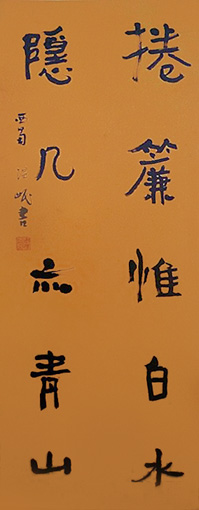 捲簾惟白水
隱几亦青山